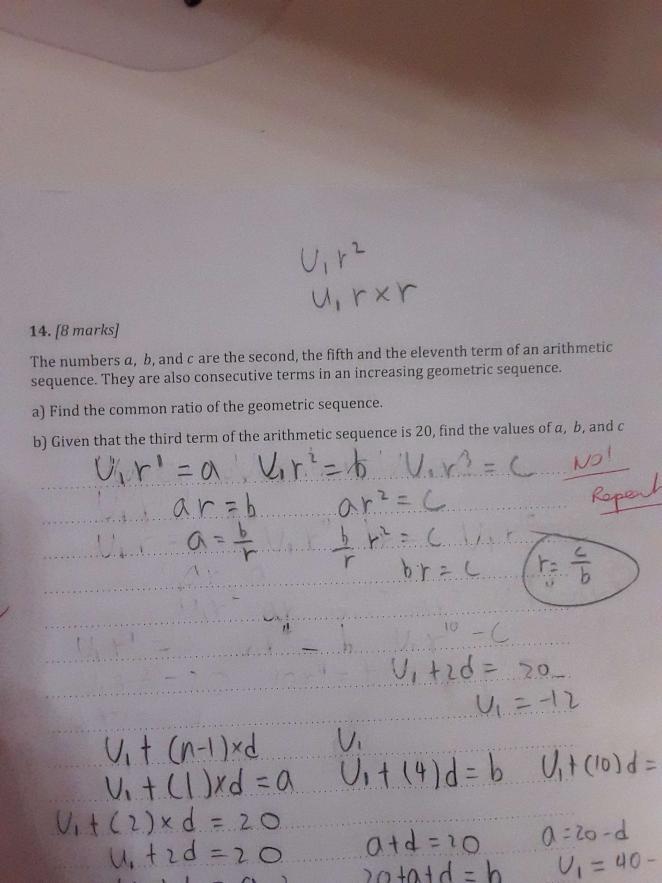 U₁r²
U₁r×r
14. [8 marks]
The numbers a, b, and c are the second, the fifth and the eleventh term of an arithmetic
sequence. They are also consecutive terms in an increasing geometric sequence.
a) Find the common ratio of the geometric sequence.
b) Given that the third term of the arithmetic sequence is 20, find the values of a, b, and c
U₁r¹ = a U₁r² = b U₁r³ = c NO!
ar = b ar² = c Repeat
a = b/r b/r r² = c
br = c r = c/b
10 - c
U₁ + 2d = 20
U₁ = -12
U₁ + (n-1)×d U₁
U₁ + (1)×d = a U₁ + (4)d = b U₁ + (10)d =
U₁ + (2)×d = 20
U₁ + 2d = 20 a+d = 20 a = 20-d
20+a+d = b U₁ = 40-